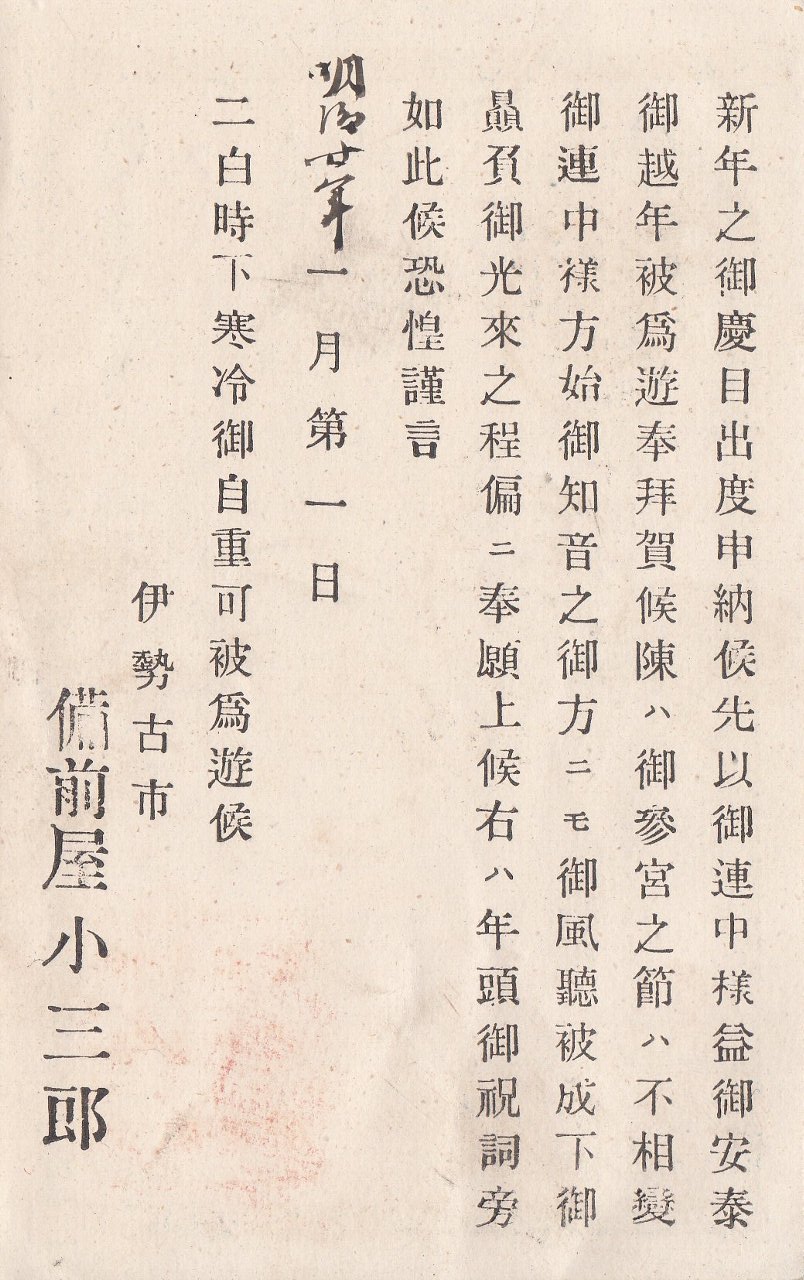 新年之御慶目出度申納候先以御連中様益御安泰
御越年被爲遊奉拜賀候陳ハ御參宮之節ハ不相變
御連中樣方始御知音之御方ニモ御風聽被成下御
贔負御光來之程偏ニ奉願上候右ハ年頭御祝詞旁
如此候恐惶謹言
明治廿年一月第一日
二白時下寒冷御自重可被爲遊候
伊勢古市
備前屋小三郎